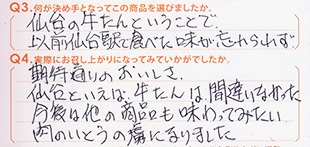 Q3.何が決め手となってこの商品を選びましたか。
仙台の牛たんということで
以前仙台駅で食べた味が忘れられず
Q4.実際にお召し上がりになってみていかがでしたか。
期待通りのおいしさ
仙台といえば、牛たんは間違いなかった
今後は他の商品も味わってみたい
肉のいとうの虜になりました